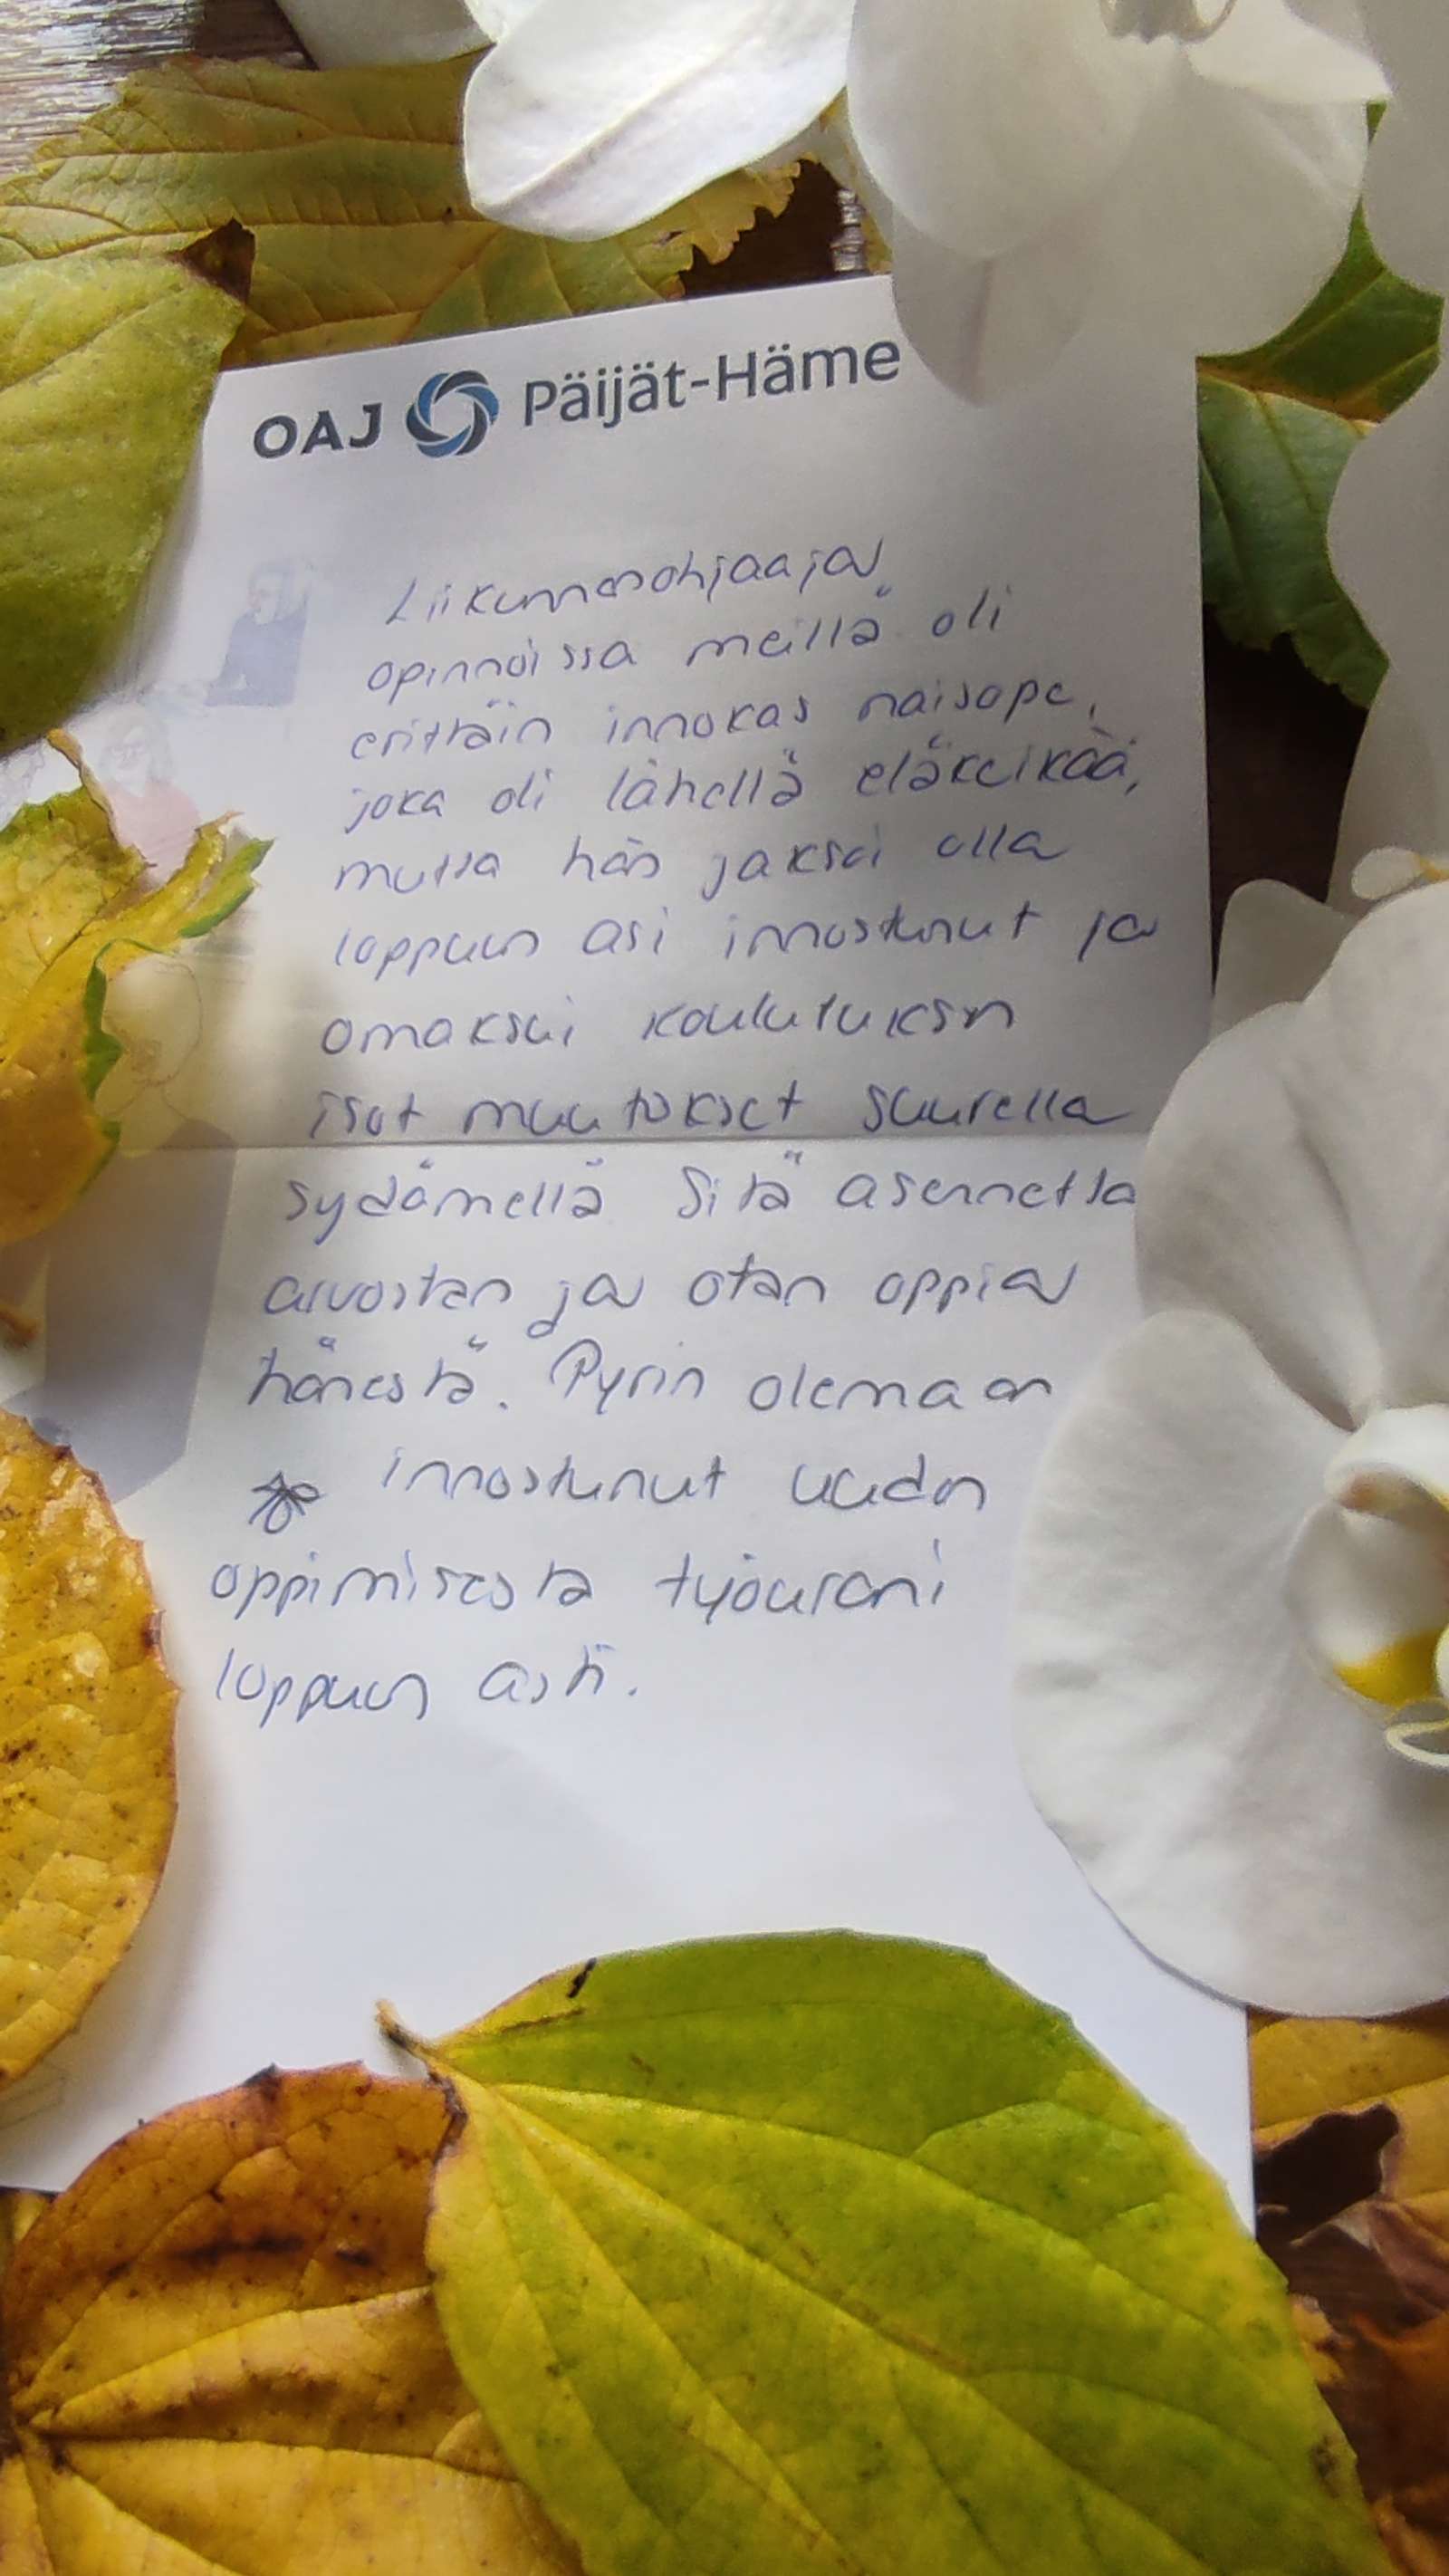 OAJ Päijät-Häme
Liikunnanohjaaja
opinnoissa meillä oli
erittäin innokas naisope,
joka oli lähellä eläkeikää,
mutta hän jaksoi olla
loppuun asi innostunut ja
omaksui koulutuksen
isot muutokset suurella
sydämellä Sitä asennetta
arvostan ja otan oppia
hänestä. Pyrin olemaan
innostunut uuden
oppimisesta työurani
loppuun asti.